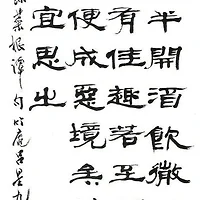 半開酒飲微
有佳趣若至
便成惡境矣
宜思之
菜根譚句